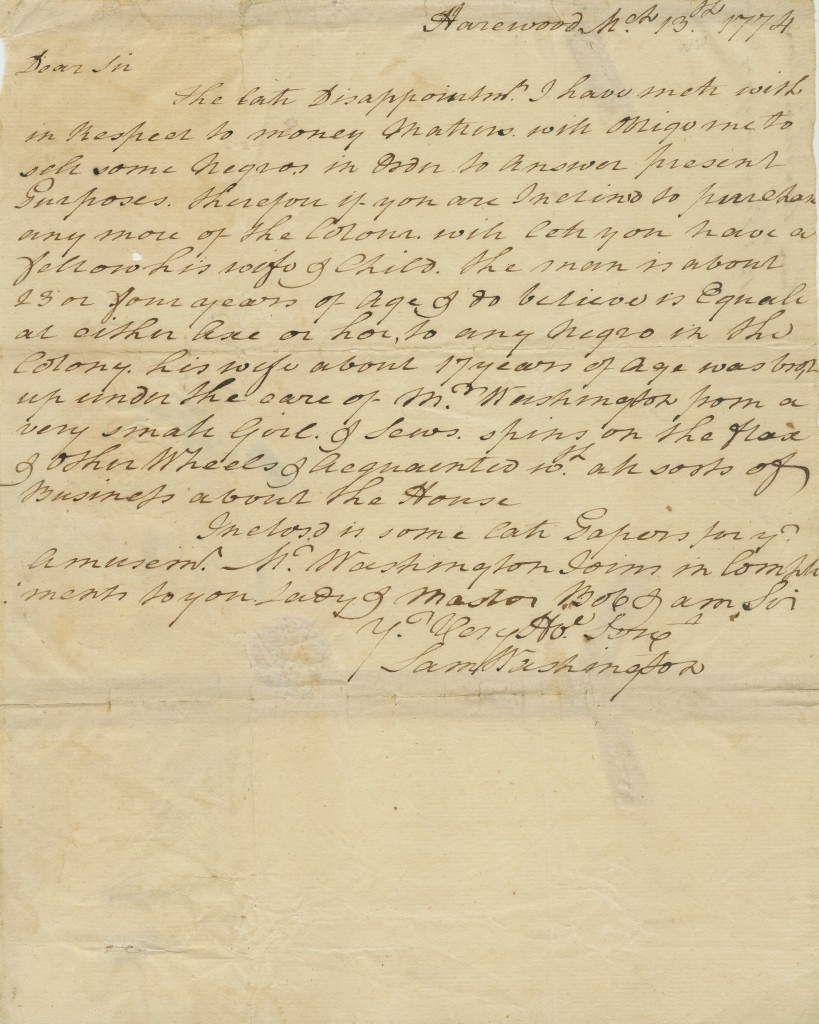 Harewood Mch 13th 1774
Dear Sir
The late Disappointmt. I have mett with
in Respect to money Matters. will Obligue me to
sell some Negros in Order to Answer present
Purposes. Therefore if you are Inclind to purchase
any more of the Colour. will lett you have a
fellow his wife & Child. The man is about
23 or four years of Age & do believe is Equall
at either Axe or hoe, to any Negro in the
Colony. his wife about 17 years of Age was brot
up under the care of Mrs. Washington from a
very small Girl. & Sews. spins on the flax
& Other Wheels & Acquainted wth. all sorts of
Business about the House
Inclosd is some late Papers for yr.
Amusemt. Mrs. Washington Joins in Compli
ments to you Lady & Master Bob & am Sir
Yr. Very Hble Servt
Saml Washington